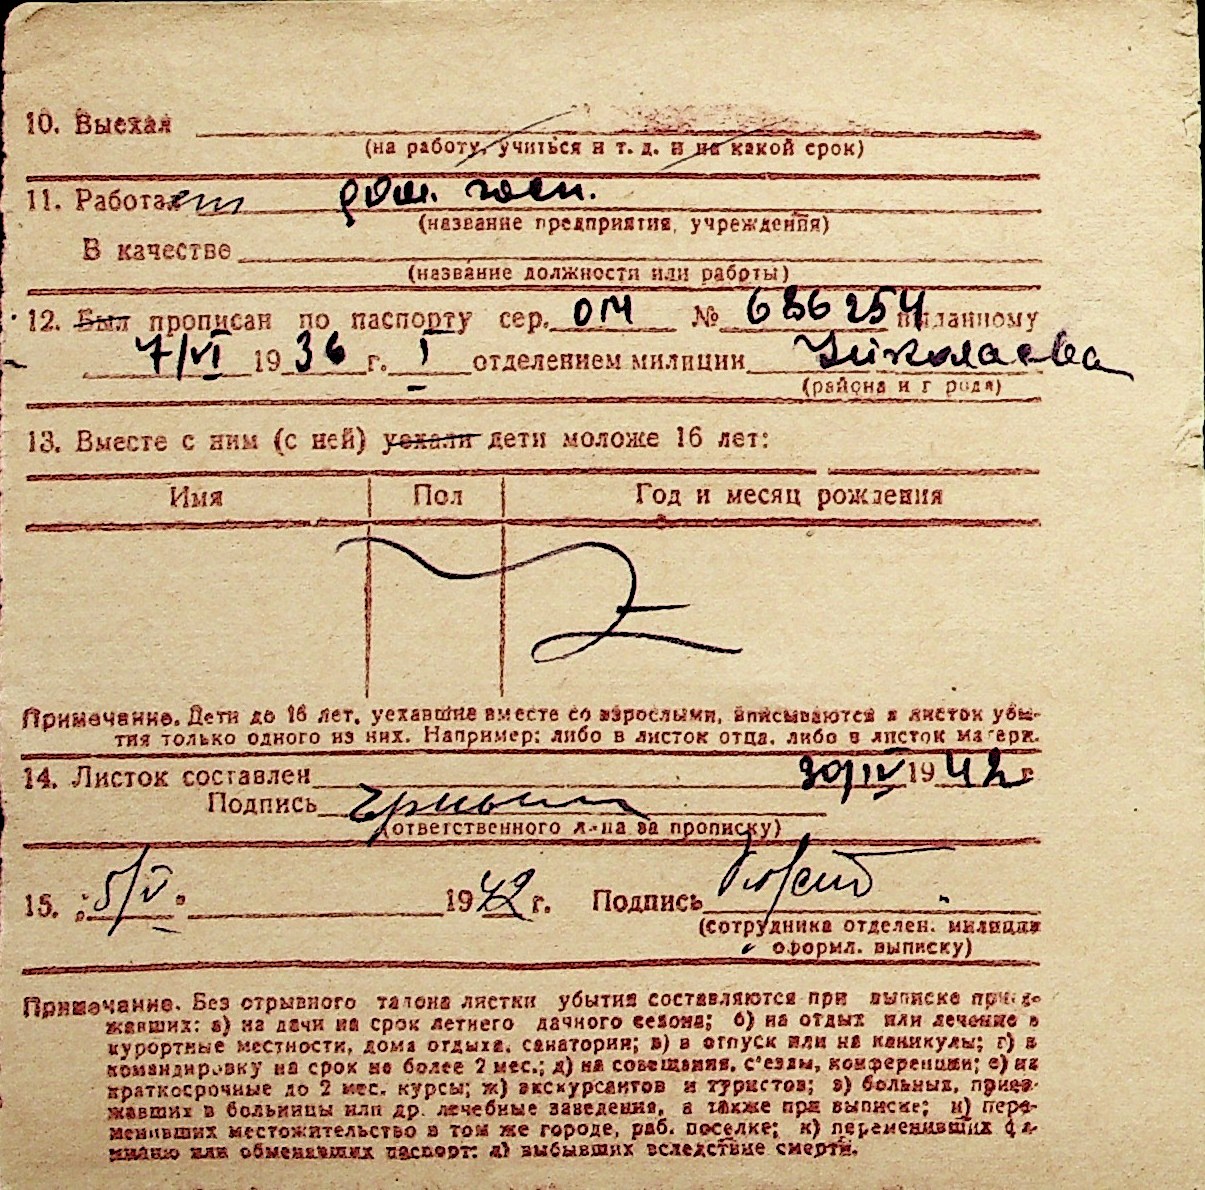 10. Выехал
(на работу, учиться и т. д. и на какой срок)
11. Работает дом. хоз.
(название предприятия, учреждения)
В качестве
(название должности или работы)
12. Был прописан по паспорту сер. ОМ № 686254 выданному
7/VI 1936 г. I отделением милиции Николаева
(района и города)
13. Вместе с ним (с ней) уехали дети моложе 16 лет:
Имя Пол Год и месяц рождения
Примечание. Дети до 16 лет, уехавшие вместе со взрослыми, вписываются в листок убы-
тия только одного из них. Например: либо в листок отца, либо в листок матери.
14. Листок составлен 30/IV 1942 г
Подпись
(ответственного л-ца за прописку)
15. „5/V" 1942 г. Подпись
(сотрудника отделен. милиции
оформл. выписку)
Примечание. Без отрывного талона листки убытия составляются при выписке приез-
жавших: а) на дачи на срок летнего дачного сезона; б) на отдых или лечение в
курортные местности, дома отдыха, санатории; в) в отпуск или на каникулы; г) в
командировку на срок не более 2 мес.; д) на совещания, с'езды, конференции; е) на
краткосрочные до 2 мес. курсы; ж) экскурсантов и туристов; з) больных, приез-
жавших в больницы или др. лечебные заведения, а также при выписке; и) пере-
менивших местожительство в том же городе, раб. поселке; к) переменивших фа-
милию или обменявших паспорт; л) выбывших вследствие смерти.